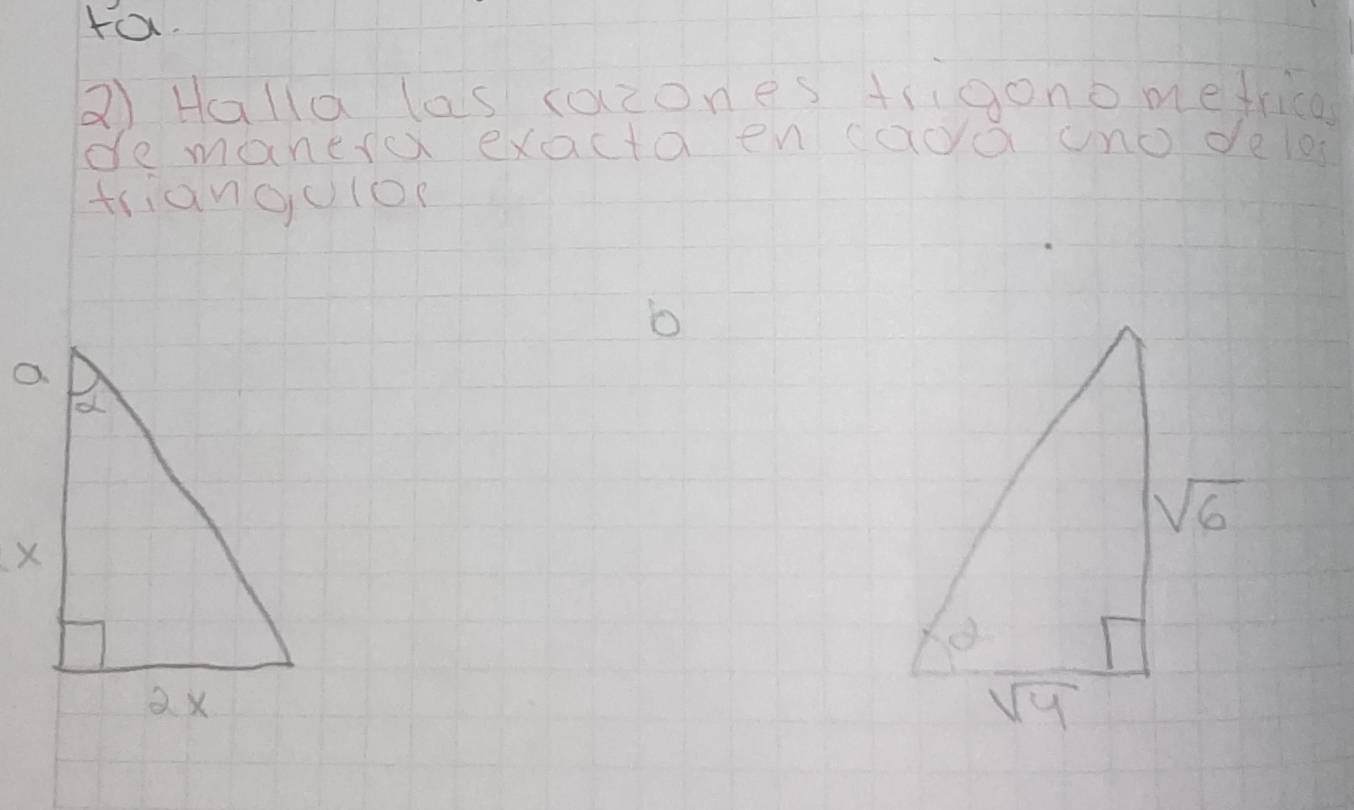 ta.
2) Halla las razones trigonometricas
de manera exacta en cada uno de los
triangulos
a
b
α
x
2x
√6
α
√4